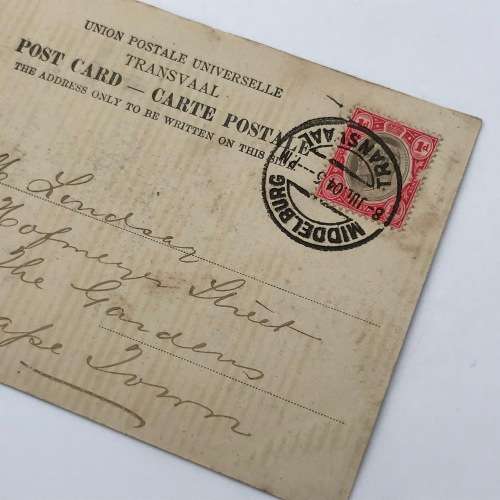 UNION POSTALE UNIVERSELLE
TRANSVAAL
POST CARD — CARTE POSTALE
THE ADDRESS ONLY TO BE WRITTEN ON THIS SIDE
1d 1d
MIDDELBURG TRANSVAAL
5 PM
8 JUL 04
Lindsay
Hofmeyer Street
The Gardens
Cape Town